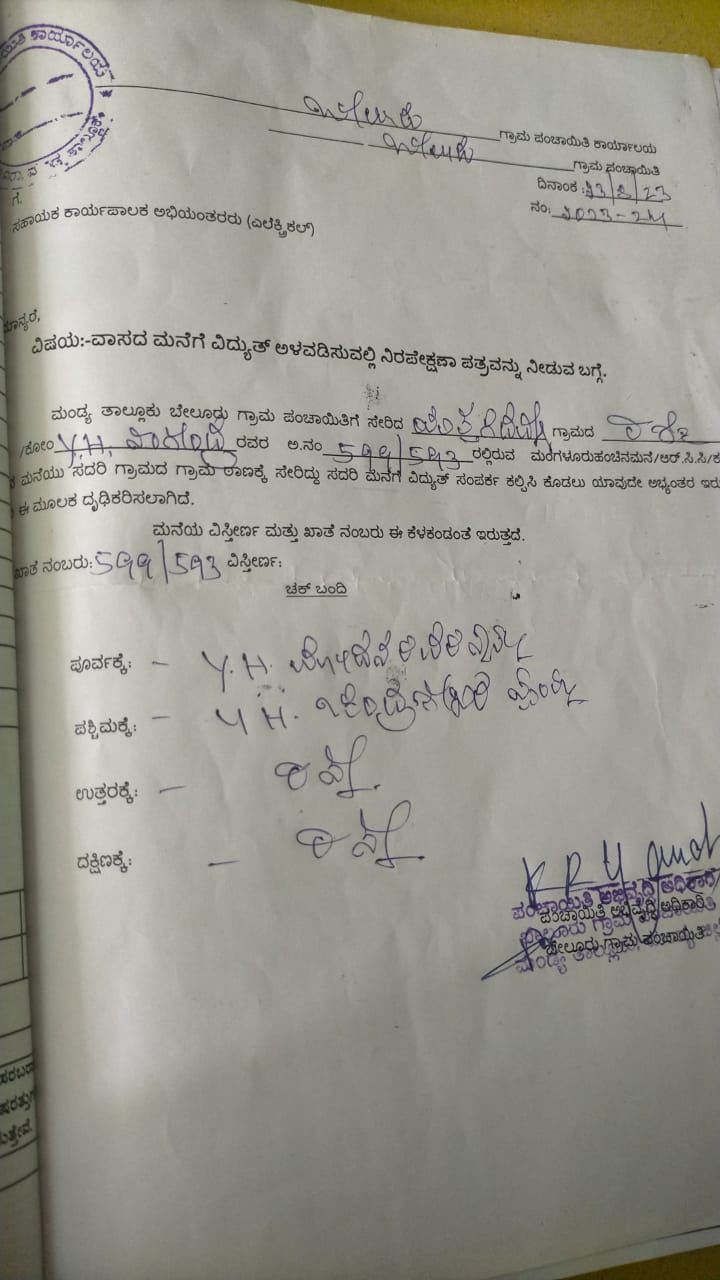 ಯಿತಿ ಕಾರ್ಯಾಲಯ
ಬೇಲೂರು ಗ್ರಾಮ ಪಂಚಾಯಿತಿ ಕಾರ್ಯಾಲಯ
ಬೇಲೂರು ಗ್ರಾಮ ಪಂಚಾಯಿತಿ
ದಿನಾಂಕ :13/2/23
ನಂ: 2023-24
ಗೆ,
ಸಹಾಯಕ ಕಾರ್ಯಪಾಲಕ ಅಭಿಯಂತರರು (ಎಲೆಕ್ಟ್ರಿಕಲ್)
ಮಾನ್ಯರೆ,
ವಿಷಯ:-ವಾಸದ ಮನೆಗೆ ವಿದ್ಯುತ್ ಅಳವಡಿಸುವಲ್ಲಿ ನಿರಪೇಕ್ಷಣಾ ಪತ್ರವನ್ನು ನೀಡುವ ಬಗ್ಗೆ.
ಮಂಡ್ಯ ತಾಲ್ಲೂಕು ಬೇಲೂರು ಗ್ರಾಮ ಪಂಚಾಯಿತಿಗೆ ಸೇರಿದ ಗ್ರಾಮದ
/ಕೋಂ Y.H. ರವರ ಅ.ನಂ 599/593 ರಲ್ಲಿರುವ ಮಂಗಳೂರುಹಂಚಿನಮನೆ/ಆರ್.ಸಿ.ಸಿ/ಕ
ಮನೆಯು ಸದರಿ ಗ್ರಾಮದ ಗ್ರಾಮ ಠಾಣಕ್ಕೆ ಸೇರಿದ್ದು ಸದರಿ ಮನೆಗೆ ವಿದ್ಯುತ್ ಸಂಪರ್ಕ ಕಲ್ಪಿಸಿ ಕೊಡಲು ಯಾವುದೇ ಅಭ್ಯಂತರ ಇರು
ಈ ಮೂಲಕ ದೃಢಿಕರಿಸಲಾಗಿದೆ.
ಮನೆಯ ವಿಸ್ತೀರ್ಣ ಮತ್ತು ಖಾತೆ ನಂಬರು ಈ ಕೆಳಕಂಡಂತೆ ಇರುತ್ತದೆ.
ಖಾತೆ ನಂಬರು: 599/593 ವಿಸ್ತೀರ್ಣ:
ಚಕ್ ಬಂದಿ
ಪೂರ್ವಕ್ಕೆ: – Y.H.
ಪಶ್ಚಿಮಕ್ಕೆ: – Y H.
ಉತ್ತರಕ್ಕೆ: – ರಸ್ತೆ.
ದಕ್ಷಿಣಕ್ಕೆ: – ರಸ್ತೆ.
ಪಂಚಾಯಿತಿ ಅಭಿವೃದ್ಧಿ ಅಧಿಕಾರಿ
ಪಂಚಾಯಿತಿ ಅಭಿವೃದ್ಧಿ ಅಧಿಕಾರಿ
ಬೇಲೂರು ಗ್ರಾಮ ಪಂಚಾಯಿತಿ
ಬೇಲೂರು ಗ್ರಾಮ ಪಂಚಾಯಿತಿ
ಮಂಡ್ಯ